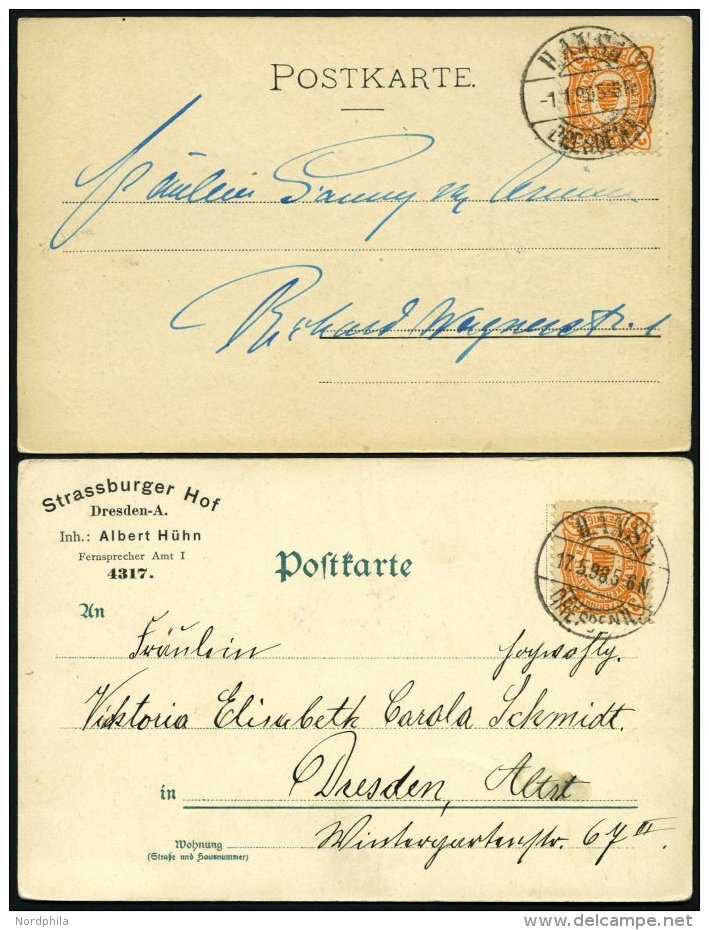 POSTKARTE.
HANSA
DRESDEN
Fräulein Fanny
Richard Wagnerstr. 1
Strassburger Hof
Dresden-A.
Inh.: Albert Hühn
Fernsprecher Amt I
4317.
Postkarte
HANSA
17.5.98.5-6N
DRESDEN
An
Fräulein hochwohlg.
Viktoria Elisabeth Carola Schmidt.
in Dresden, Altst
Wohnung
(Straße und Hausnummer)
Wintergartenstr. 67 III.
Nordphila
www.delcampe.net